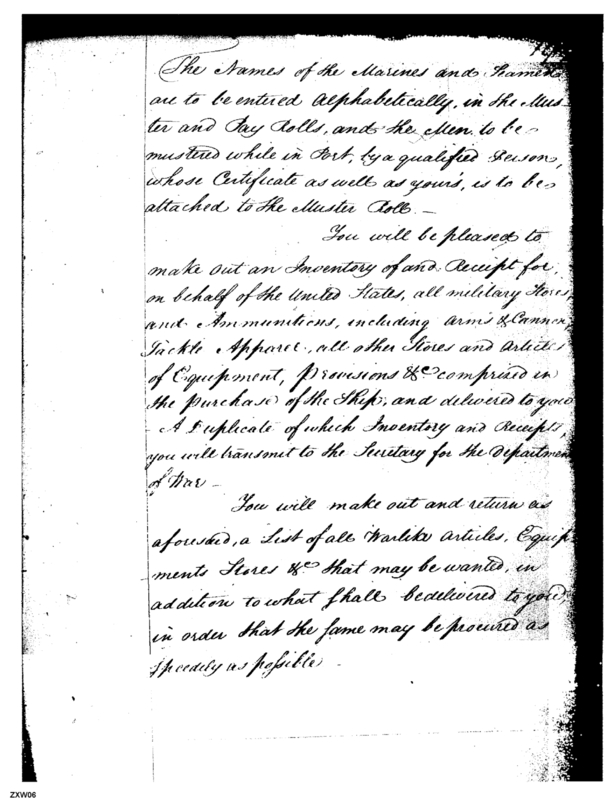 The Names of the Marines and Seamen
are to be entered Alphabetically, in the Mus-
ter and Pay Rolls, and the Men to be
mustered while in Port, by a qualified Person,
whose Certificate as well as your's, is to be
attached to the Muster Roll –
You will be pleased to
make out an Inventory of and Receipt for
on behalf of the United States, all military Stores,
and Ammunitions, including Arms & Cannon,
Tackle Apparel, all other Stores and Articles
of Equipment, Provisions &c comprised in
the purchase of the Ship, and delivered to you
– A Duplicate of which Inventory and Receipts,
you will transmit to the Secretary for the Department
of War –
You will make out and return as
aforesaid, a List of all Warlike Articles, Equip-
ments Stores &c that may be wanted, in
addition to what shall be delivered to you,
in order that the same may be procured as
speedily as possible –
ZXW06